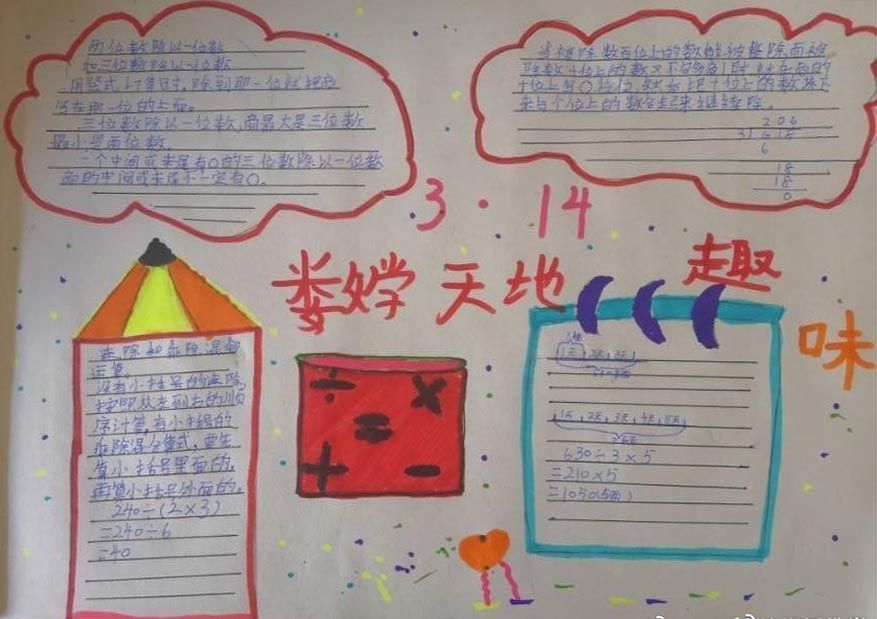 两位数除以一位数
和三位数除以一位数
用竖式计算时，除到那一位就把商
写在那一位的上面。
三位数除以一位数，商最大是三位数
最小是两位数。
一个中间或末尾有0的三位数除以一位数
商的中间或末尾不一定有0。
当被除数百位上的数能被整除，而被
除数十位上的数又不够商1时，就在商的
十位上写0占位，然后把十位上的数落下
来与个位上的数合起来继续除。
206
3 618
6
18
18
0
3·14
数学天地
趣
味
连除和乘除混合
运算。
没有小括号的连除，
按照从左到右的顺
序计算，有小括号的
乘除混合算式，要先
算小括号里面的，
再算小括号外面的。
240÷(2×3)
=240÷6
=40
÷ ×
=
+ -
1天 2天 3天
1天 2天 3天 4天 5天
630÷3×5
=210×5
=1050